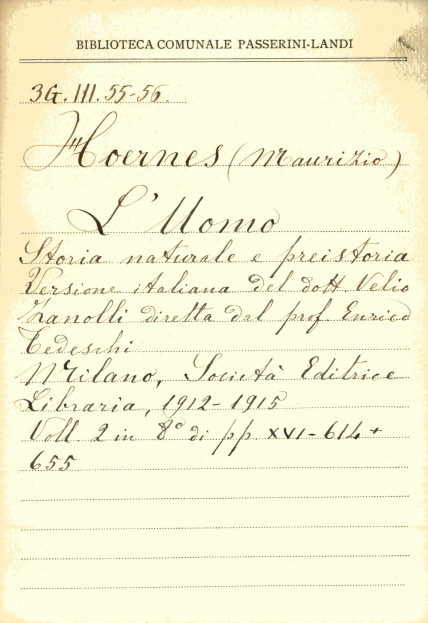 BIBLIOTECA COMUNALE PASSERINI-LANDI
3G. III. 55-56.
Hoernes (Maurizio)
L'Uomo
Storia naturale e preistoria
Versione italiana del dott. Velio
Zanolli diretta dal prof. Enrico
Tedeschi
Milano, Società Editrice
Libraria, 1912-1915
Voll. 2 in 8° di pp XVI-614+
655